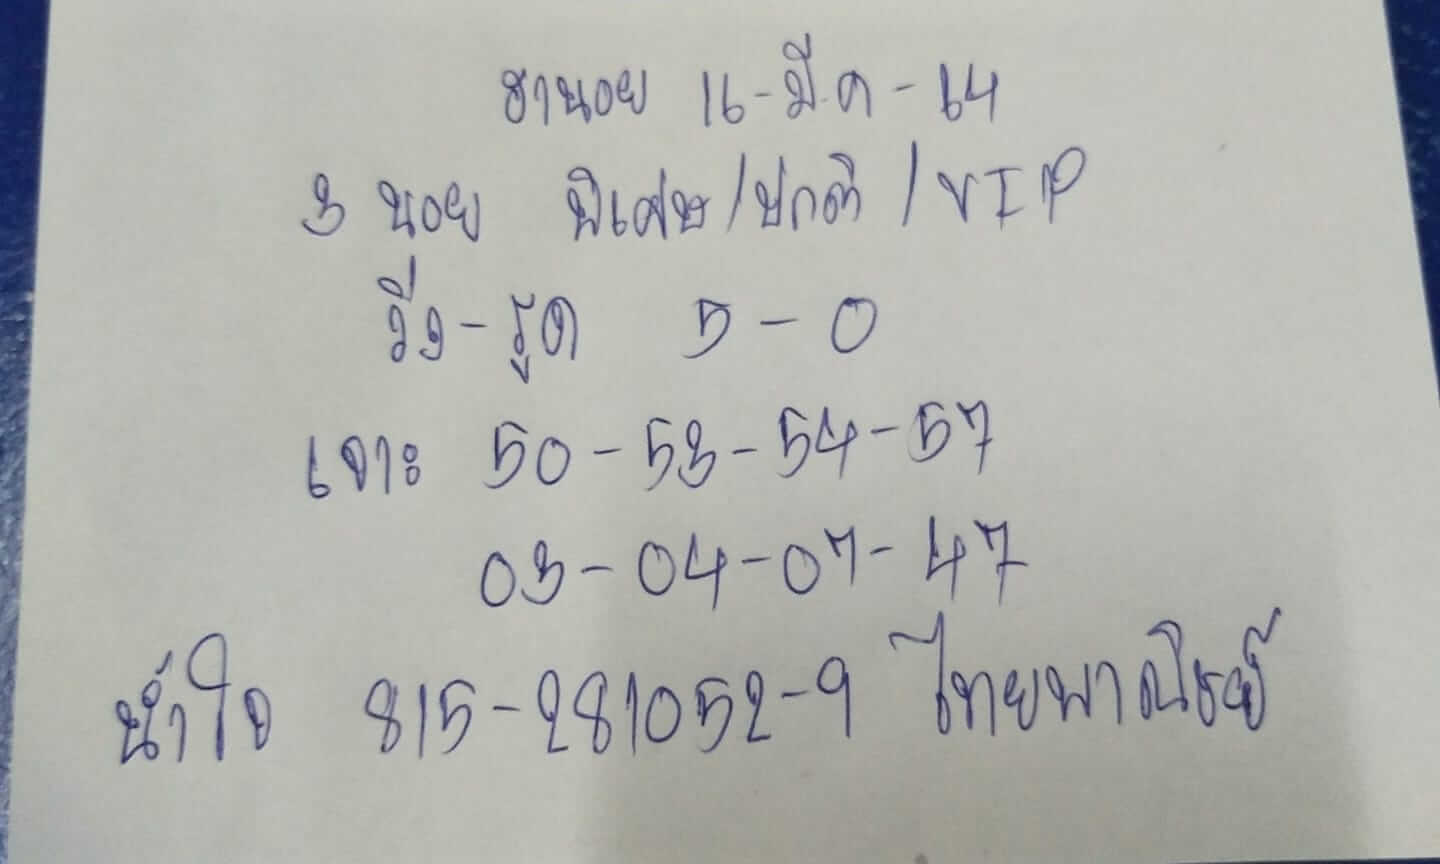 ฮานอย 16-มี.ค-64
3 นอย พิเศษ/ปกติ/VIP
วิ่ง-รูด 5-0
เจาะ 50-53-54-57
03-04-07-47
น้ำใจ 815-281052-9 ไทยพาณิชย์